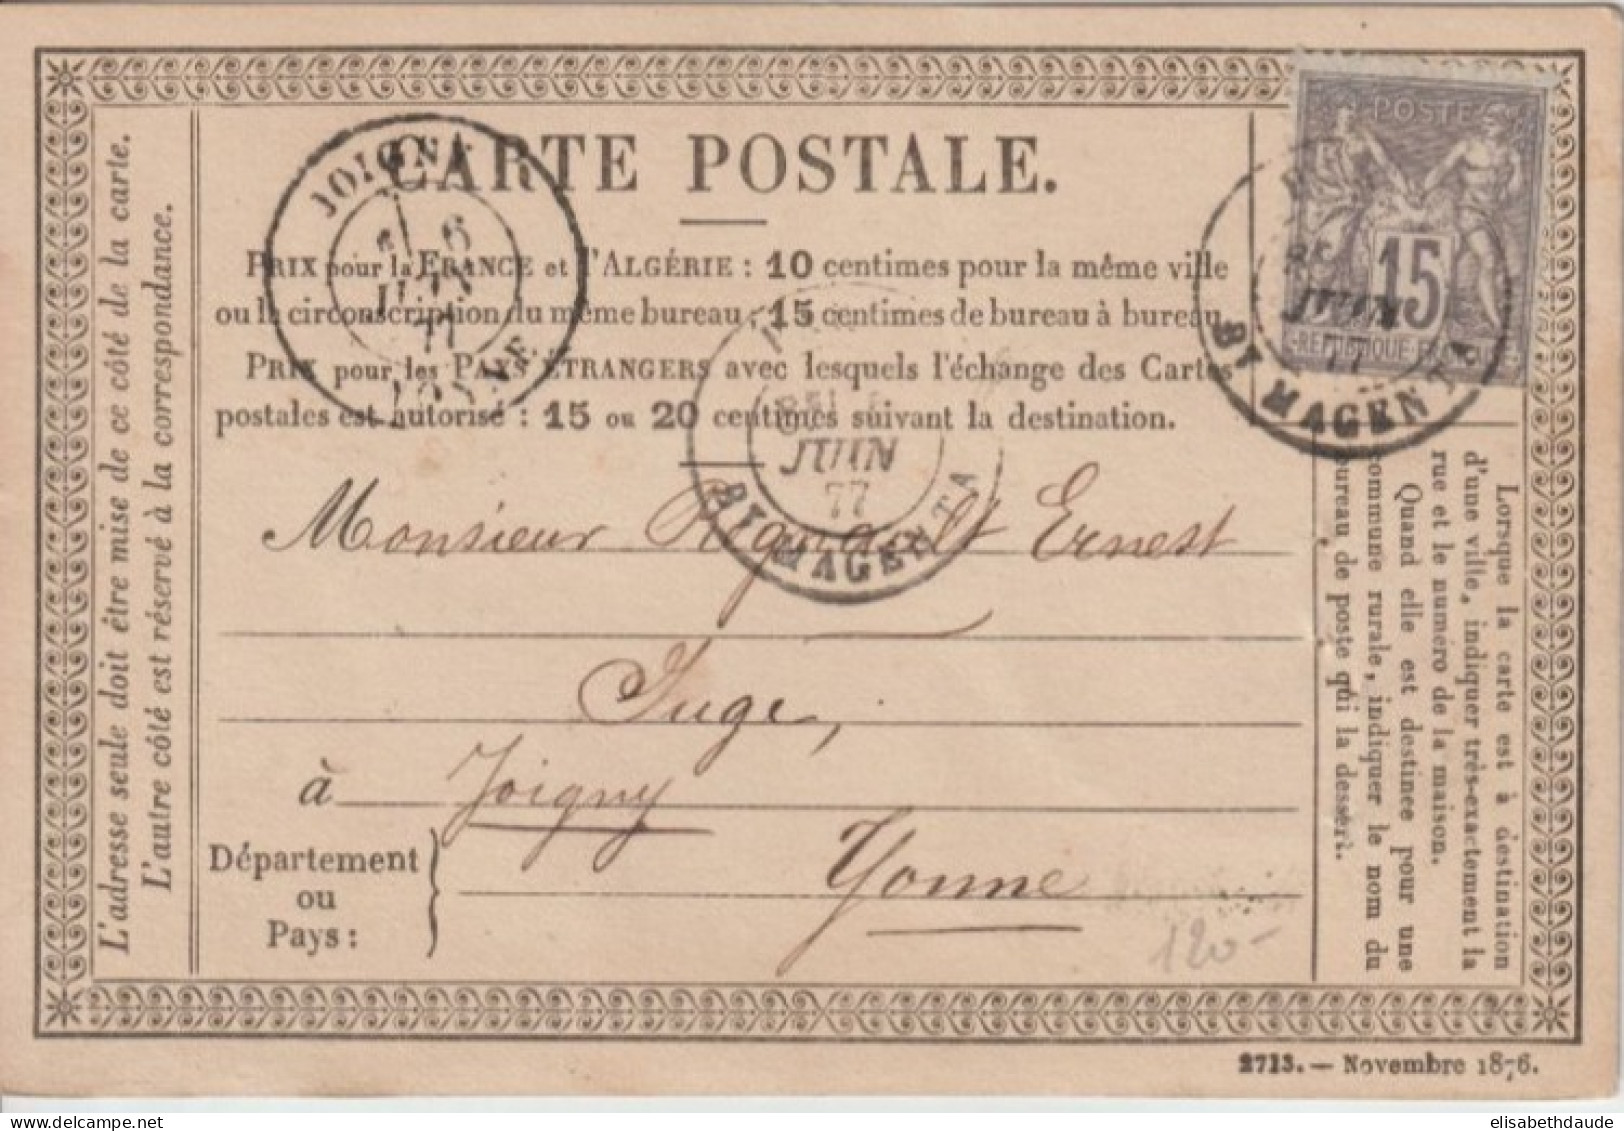 CARTE POSTALE.
PRIX pour la FRANCE et l'ALGÉRIE : 10 centimes pour la même ville
ou la circonscription du même bureau ; 15 centimes de bureau à bureau.
PRIX pour les PAYS ÉTRANGERS avec lesquels l'échange des Cartes
postales est autorisé : 15 ou 20 centimes suivant la destination.
L'adresse seule doit être mise de ce côté de la carte.
L'autre côté est réservé à la correspondance.
JOIGNY
6
JUIN
77
YONNE
JUIN
77
BT MAGENTA
POSTE
15
REPUBLIQUE FRANÇAISE
JUIN
77
BT MAGENTA
Monsieur Ernest
Juge,
à Joigny
Département
ou
Pays :
Yonne
120-
Lorsque la carte est à destination
d'une ville, indiquer très-exactement la
rue et le numéro de la maison.
Quand elle est destinée pour une
commune rurale, indiquer le nom du
bureau de poste qui la dessert.
2713. — Novembre 1876.
elisabethdaude